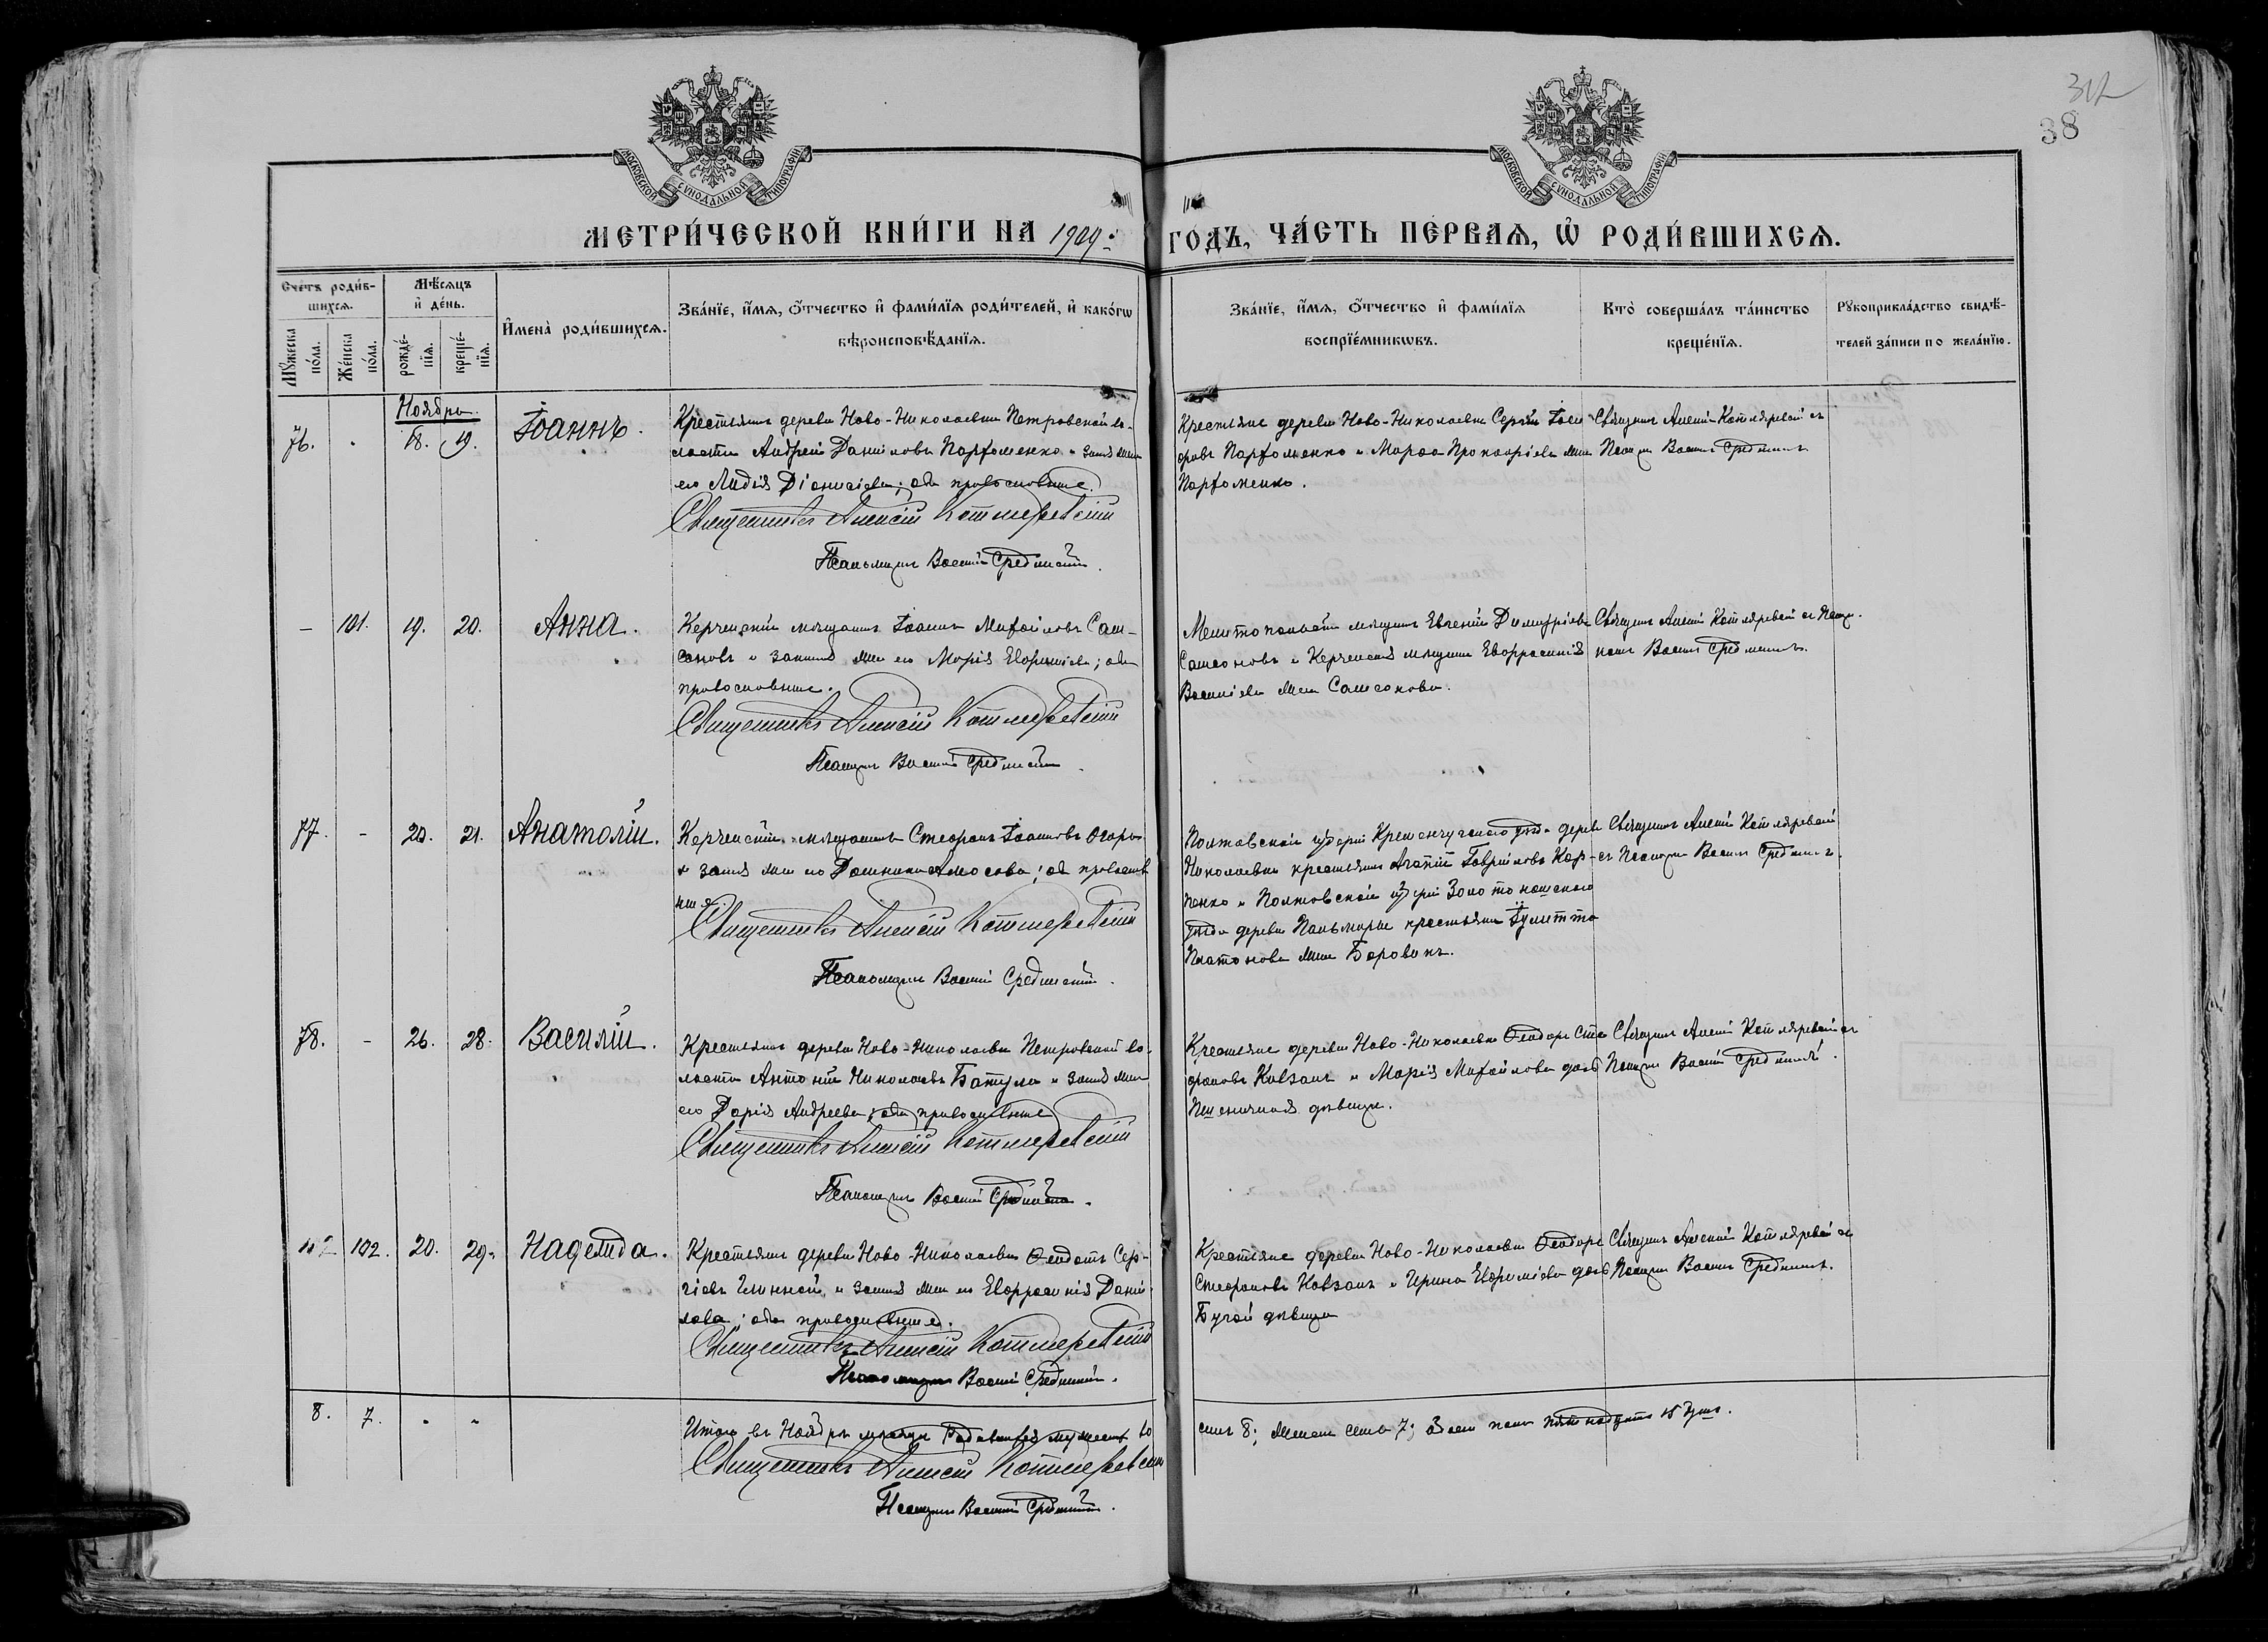 312
38
МОСКОВСКОЙ СѴНОДАЛЬНОЙ ТИПОГРАФІИ
МОСКОВСКОЙ СѴНОДАЛЬНОЙ ТИПОГРАФІИ
МЕТРИ́ЧЕСКОЙ КНИ́ГИ НА 1909 ГОДЪ, ЧА́СТЬ ПЕ́РВАЯ, Ѡ РОДИ́ВШИХСЯ.
Сче́тъ роди́в-
шихся.
Мꙋ́жеска по́ла.
Же́нска по́ла.
Мѣ́сяцъ
и҆ де́нь.
рожде́-
нїя.
креще́-
нїя.
И҆мена̀ роди́вшихся.
Зва́нїе, и҆́мя, ѻ҆́тчество и҆ фами́лїя роди́телей, и҆ како́гѡ
вѣроисповѣ́данїя.
Зва́нїе, и҆́мя, ѻ҆́тчество и҆ фами́лїя
воспрїе́мникѡвъ.
Кто̀ соверша́лъ та́инство
креще́нїя.
Рꙋкоприкла́дство свидѣ́-
телей за́писи по жела́нїю.
Ноябрь.
76. 18. 19. Іоаннъ.
Крестьянинъ деревни Ново-Николаевки Петровской во-
лости Андрей Даніиловъ Пархоменко и зак. жена
его Лидія Діонисіева; оба православные.
Священникъ Алексій Котляревскій
Псаломщикъ Василій Срединскій.
Крестьяне деревни Ново-Николаевки Сергій
Пархоменко и Марѳа Прокопіева жена
Пархоменко.
Священникъ Алексій Котляревскій съ
Псаломщ. Василіемъ Срединскимъ
– 101. 19. 20. Анна.
Керченскій мѣщанинъ Іоаннъ Михаиловъ Сам-
соновъ и законная жена его Марія; оба
православные.
Священникъ Алексій Котляревскій
Псаломщикъ Василій Срединскій.
Мелитопольскій мѣщанинъ Евгеній Димитріевъ
Самсоновъ и Керченская мѣщанка Евфросинія
Василіева жена Самсонова.
Священникъ Алексій Котляревскій съ Псалом-
щикомъ Василіемъ Срединскимъ.
77. – 20. 21. Анатолій.
Керченскій мѣщанинъ Стефанъ Іоанновъ
и зак. жена его Домника Амосова; оба православ-
ные.
Священникъ Алексій Котляревскій
Псаломщикъ Василій Срединскій.
Полтавской губерніи Кременчугскаго уѣзда деревни
Николаевки крестьянинъ Агапій Гавріиловъ Кар-
пенко и Полтавской губерніи Золотоношскаго
уѣзда деревни крестьянка Іулитта
Платонова жена Боровикъ.
Священникъ Алексій Котляревскій
съ Псаломщ. Василіемъ Срединскимъ.
78. – 26. 28. Василій.
Крестьянинъ деревни Ново-Николаевки Петровской во-
лости Антоній Николаевъ Батула и зак. жена
его Дарія Андреева; оба православные
Священникъ Алексій Котляревскій
Псаломщикъ Василій Срединскій.
Крестьяне деревни Ново-Николаевки Ѳеодоръ Сте-
фановъ Ковзанъ и Марія Михаилова дочь
Пшеничная дѣвица.
Священникъ Алексій Котляревскій съ
Псаломщ. Василіемъ Срединскимъ.
102. 20. 29. Надежда.
Крестьянинъ деревни Ново-Николаевки Ѳеодотъ Сер-
гіевъ и зак. жена его Евфросинія Даніи-
лова; оба православные.
Священникъ Алексій Котляревскій
Псаломщикъ Василій Срединскій.
Крестьяне деревни Ново-Николаевки Ѳеодоръ
Стефановъ Ковзанъ и Ирина дочь
дѣвица
Священникъ Алексій Котляревскій съ
Псаломщ. Василіемъ Срединскимъ.
8. 7.
Итого въ Ноябрѣ мѣсяцѣ Родившихся мужеска во-
семь 8; женска семь 7; обоего пола пятнадцать 15 душъ.
Священникъ Алексій Котляревскій
Псаломщикъ Василій Срединскій.